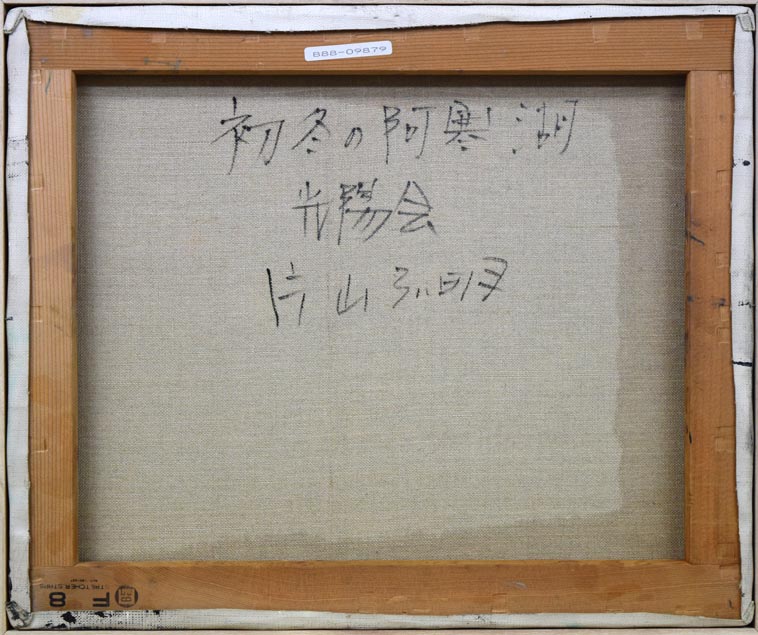 888-09879
初冬の阿寒湖
光陽会
片山弘明
F8